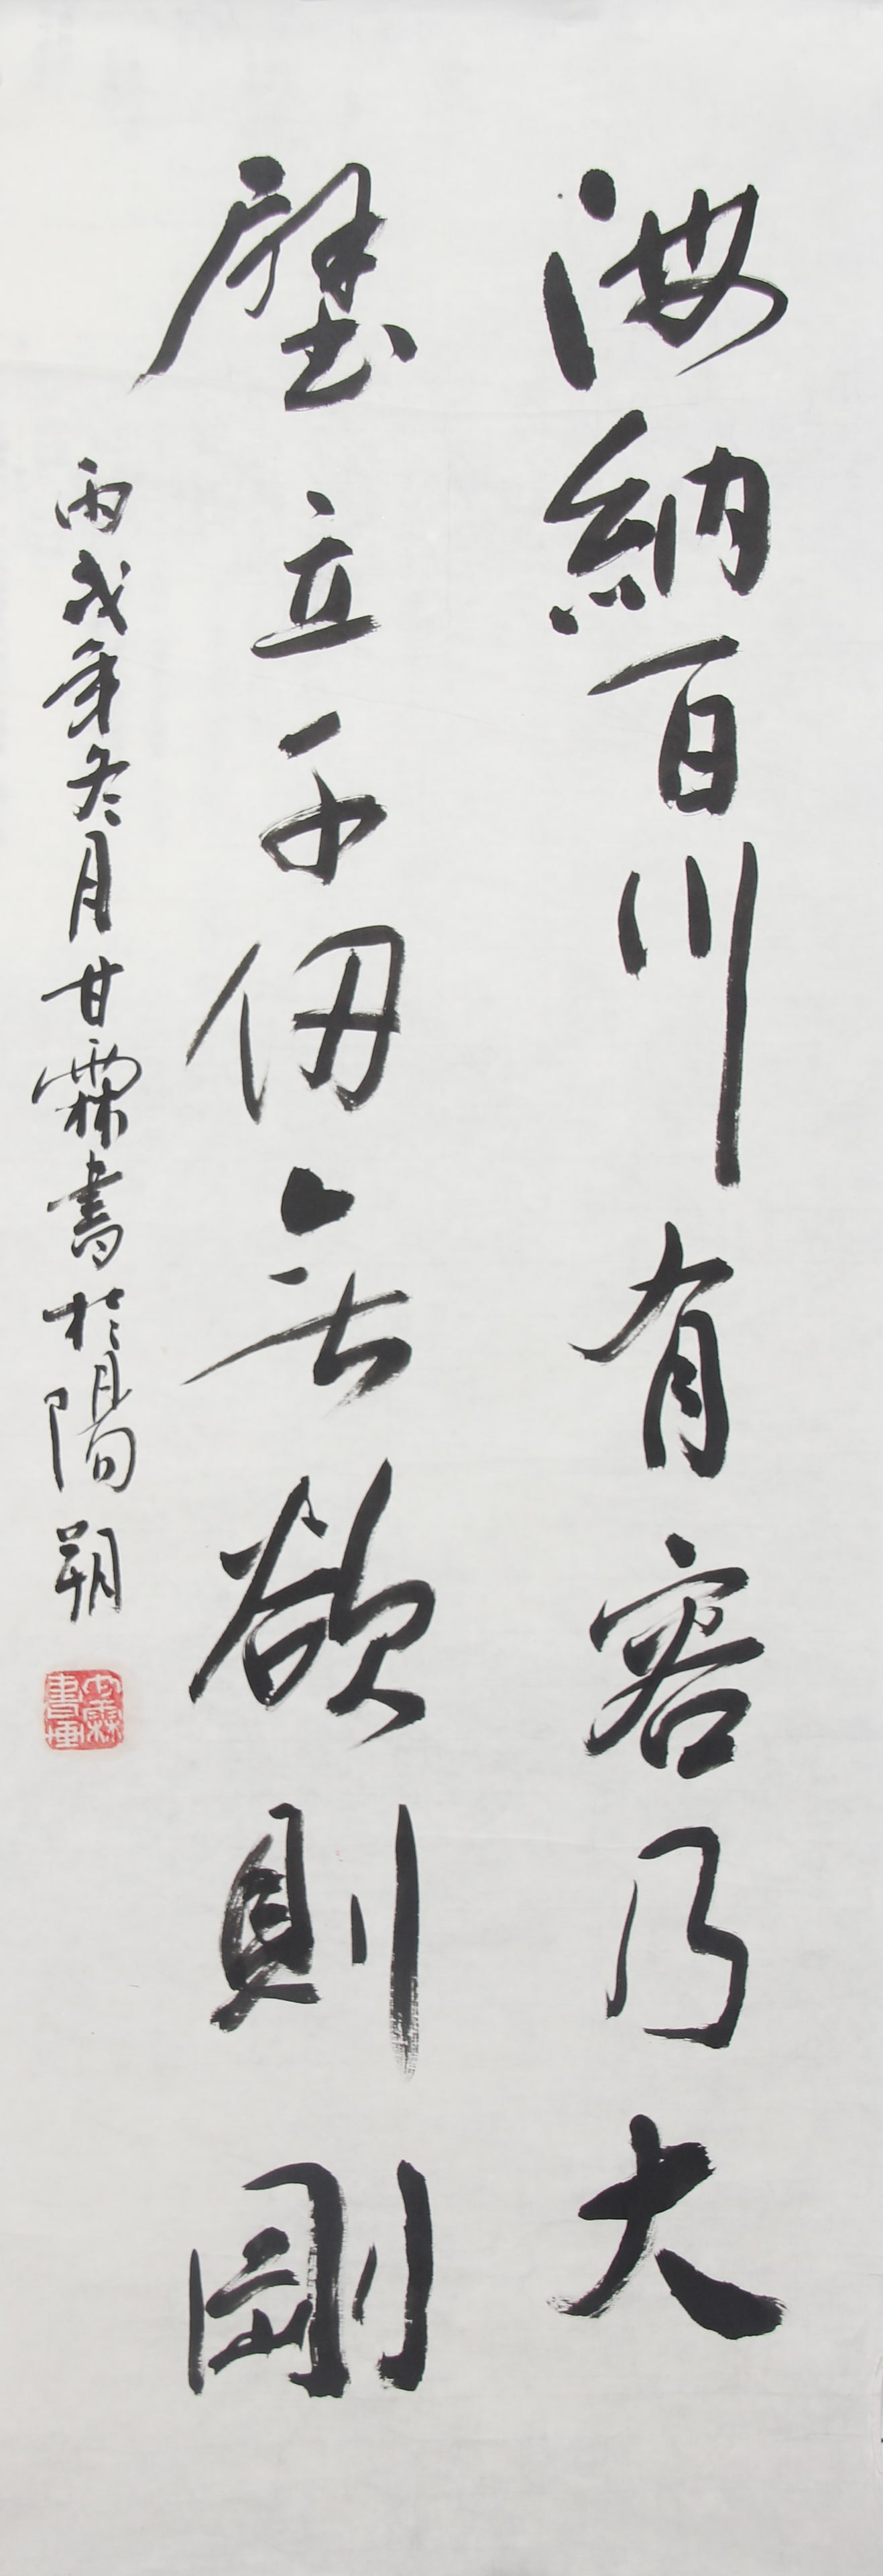 海納百川有容乃大
壁立千仞無欲則剛
丙戌年冬月甘霖書於陽朔